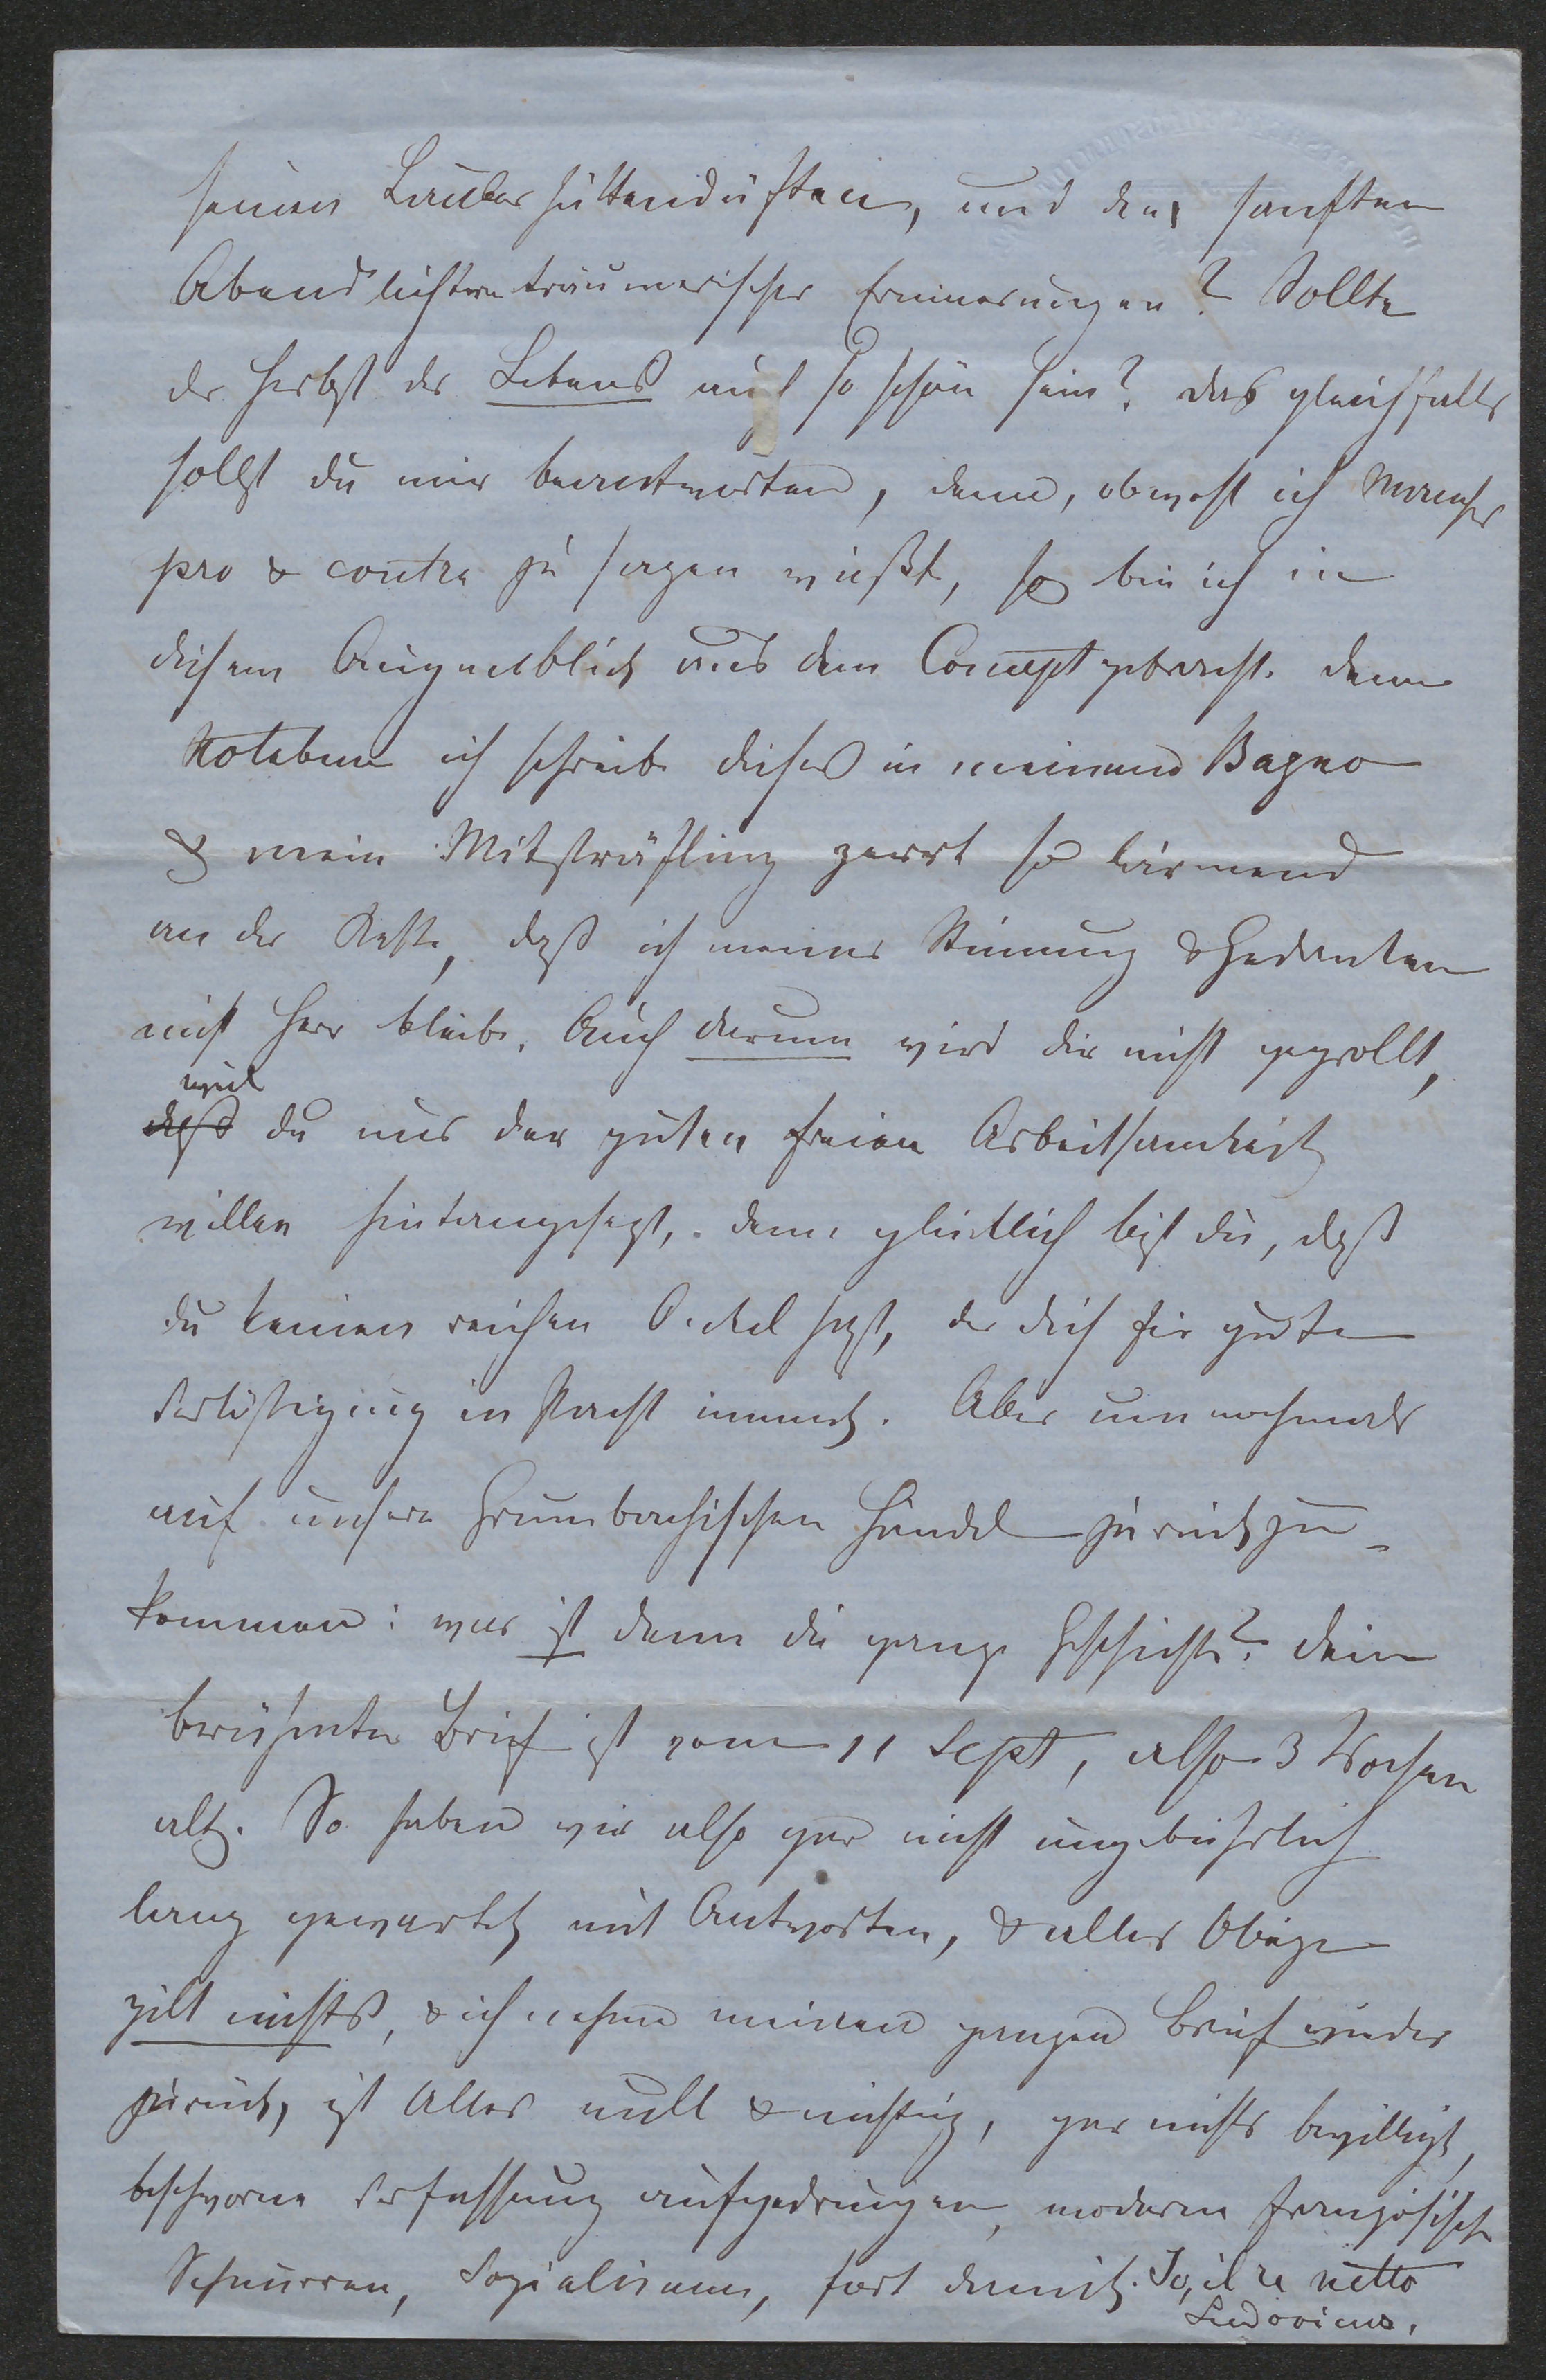 seinen Laubhüttendüften, und den sanften
Abendlichtern träumerischer Erinnerungen? Sollte
der Herbst des Lebens auch so schön sein? das gleichfalls
sollst du mir beantworten, denn, obwohl ich Manches
pro & contra zu sagen wüßte, so bin ich in
diesem Augenblick aus dem Concept gebracht. denn
Notabene ich schreibe dieses in meinem Bagno
& mein Mitsträfling zerrt so lärmend
an der Kette, daß ich meiner Stimmung & Gedanken
nicht Herr bleibe. Auch darum wird dir nicht gegrollt,
weil
daß du uns der guten freien Arbeitsamkeit
willen hintangesetzt, denn glücklich bist du, daß
du keinen reichen Onkel hast, der dich für gute
Verköstigung in Pacht nimmt. Aber um nochmals
auf unsere Grumbachischen Händel zurückzu-
kommen: was ist denn die ganze Geschichte? dein
berühmter Brief ist vom 11 Sept, also 3 Wochen
alt. So haben wir also gar nicht ungebührlich
lang gewartet mit Antworten, & alles Obige
gilt nichts, & ich nehme meinen ganzen Brief wieder
zurück, ist Alles null & nichtig, gar nichts bewilligt,
beschworne Verfassung aufgedrungen, moderne französische
Schnurren, Sozialismus, fort damit. Io, il re netto
Ludovicus.